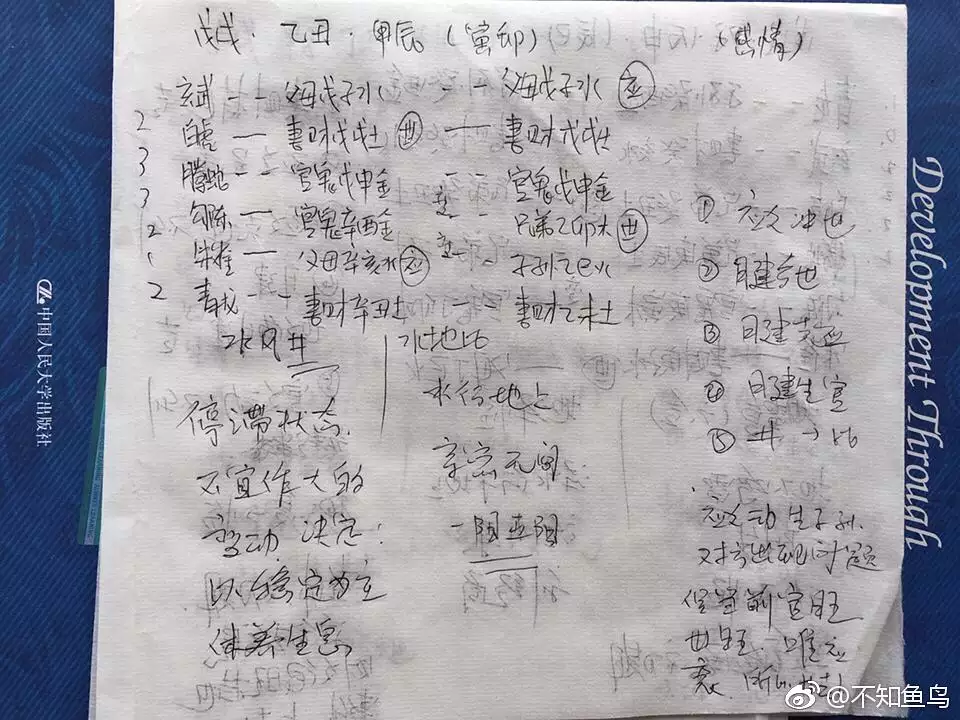 戊戌·乙丑·甲辰（寅卯）（感情）
玄武 -- 父母戊子水 -- 父母戊子水 应
2 白虎 — 妻财戊戌土 世 — 妻财戊戌土
3 腾蛇 -- 官鬼戊申金 -- 官鬼戊申金
3 勾陈 — 官鬼辛酉金 变 -- 兄弟乙卯木 世
2 朱雀 — 父母辛亥水 应 变 -- 子孙乙巳火
2 青龙 -- 妻财辛丑土 -- 妻财乙未土
水风井
水地比
停滞状态
不宜作大的
变动 决定:
以稳定为主
休养生息
水行地上
亲密无间
一阳五阴
① 应爻冲世
② 日建合世
③ 月建克应
④ 日建生官
⑤ 井→比
应爻动生子孙.
对方出现问题
但当前官旺
世旺. 唯应
衰.
中国人民大学出版社
Development Through
@不知鱼鸟